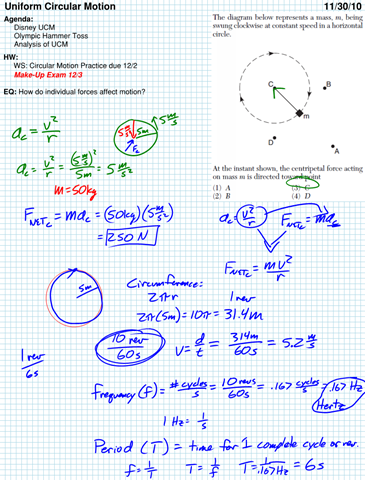 Uniform Circular Motion 11/30/10
Agenda:
Disney UCM
Olympic Hammer Toss
Analysis of UCM
HW:
WS: Circular Motion Practice due 12/2
Make-Up Exam 12/3
EQ: How do individual forces affect motion?
The diagram below represents a mass, m, being
swung clockwise at constant speed in a horizontal
circle.
C
B
m
D
A
At the instant shown, the centripetal force acting
on mass m is directed toward point
(1) A (3) C
(2) B (4) D
a_c = v²/r
5m/s
5m
F_c
a_c = v²/r = (5 m/s)²/5m = 5 m/s²
m = 50kg
F_NETc = ma_c = (50kg)(5 m/s²)
= 250 N
a_c = v²/r F_NETc = ma_c
F_NETc = mv²/r
5m
Circumference:
2πr 1 rev
2π(5m) = 10π = 31.4m
10 rev/60s v = d/t = 314m/60s = 5.2 m/s
1 rev/6s
Frequency (f) = # cycles/s = 10 revs/60s = .167 cycles/s = .167 Hz
Hertz
1 Hz = 1/s
Period (T) = time for 1 complete cycle or rev.
f = 1/T T = 1/f T = 1/.167Hz = 6s